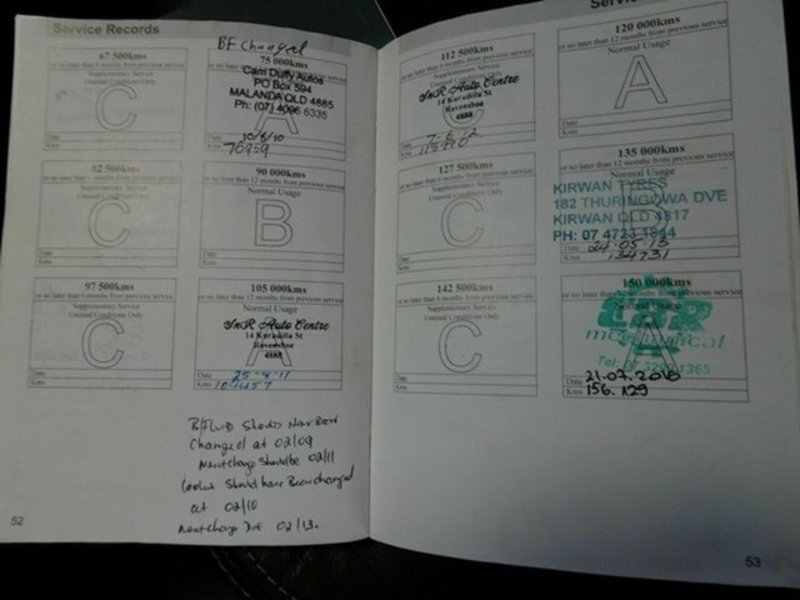 Service Records
BF Changed
67 500kms
or no later than 6 months from previous service
Supplementary Service
Unusual Conditions Only
C
Date
Kms
75 000kms
Cam Duffy Autos
PO Box 594
MALANDA QLD 4885
Ph: (07) 4096 6335
A
Date 10/8/10
Kms 76959
82 500kms
or no later than 6 months from previous service
Supplementary Service
Unusual Conditions Only
C
Date
Kms
90 000kms
or no later than 12 months from previous service
Normal Usage
B
Date
Kms
97 500kms
or no later than 6 months from previous service
Supplementary Service
Unusual Conditions Only
C
Date
Kms
105 000kms
or no later than 12 months from previous service
Normal Usage
SnR Auto Centre
14 Kuradilla St
Ravenshoe
4888
A
Date 25-8-11
Kms 104457
B/Fluid Should Have Been
Changed at 02/09
Next change Should be 02/11
Coolant Should have Been changed
at 02/10
Next change Due 02/13.
52
112 500kms
or no later than 6 months from previous service
Supplementary Service
SnR Auto Centre
14 Kuradilla St
Ravenshoe
4888
C
Date
Kms
120 000kms
or no later than 12 months from previous service
Normal Usage
A
Date
Kms
127 500kms
or no later than 6 months from previous service
Supplementary Service
Unusual Conditions Only
C
Date
Kms
135 000kms
or no later than 12 months from previous service
Normal Usage
KIRWAN TYRES
182 THURINGOWA DVE
KIRWAN QLD 4817
PH: 07 4723 1844
B
Date 24.05.13
Kms 134731
142 500kms
or no later than 6 months from previous service
Supplementary Service
Unusual Conditions Only
C
Date
Kms
150 000kms
or no later than 12 months from previous service
Normal Usage
CBR
mechanical
A
Date 21.07.2016
Kms 156.129
53